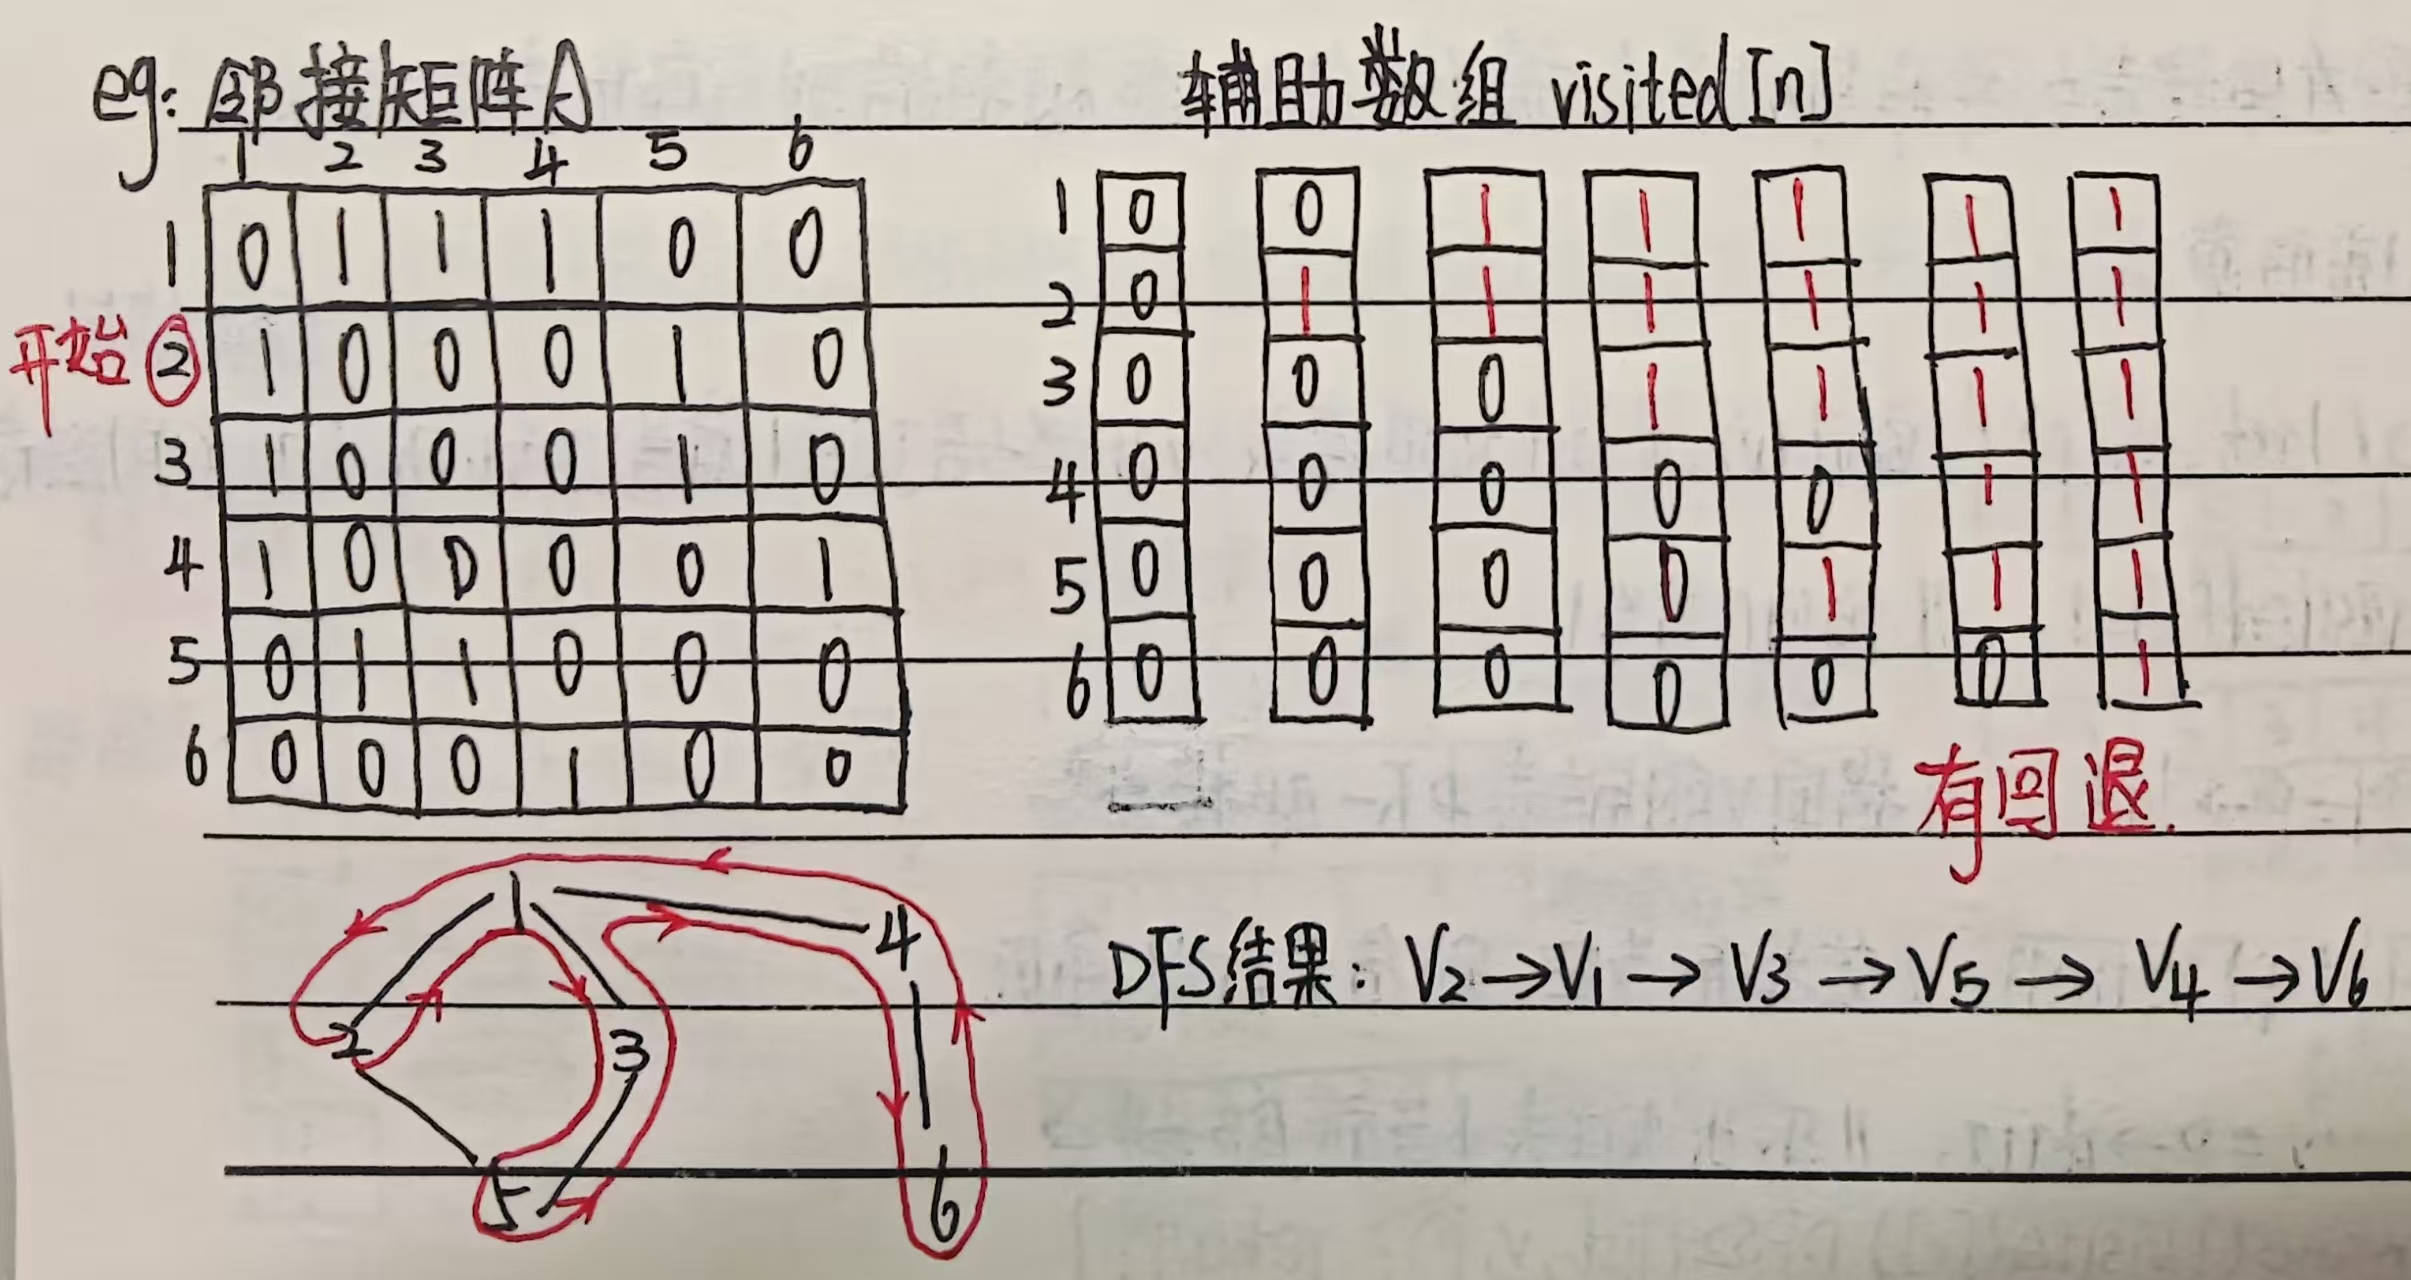 eg: 邻接矩阵A
辅助数组 visited[n]
1 2 3 4 5 6
1 0 1 1 1 0 0
开始 ② 1 0 0 0 1 0
3 1 0 0 0 1 0
4 1 0 0 0 0 1
5 0 1 1 0 0 0
6 0 0 0 1 0 0
1 0 0 1 1 1 1 1
2 0 1 1 1 1 1 1
3 0 0 0 1 1 1 1
4 0 0 0 0 0 1 1
5 0 0 0 0 1 1 1
6 0 0 0 0 0 0 1
有回退.
1
4
2
3
5
6
DFS结果: V2→V1→V3→V5→V4→V6